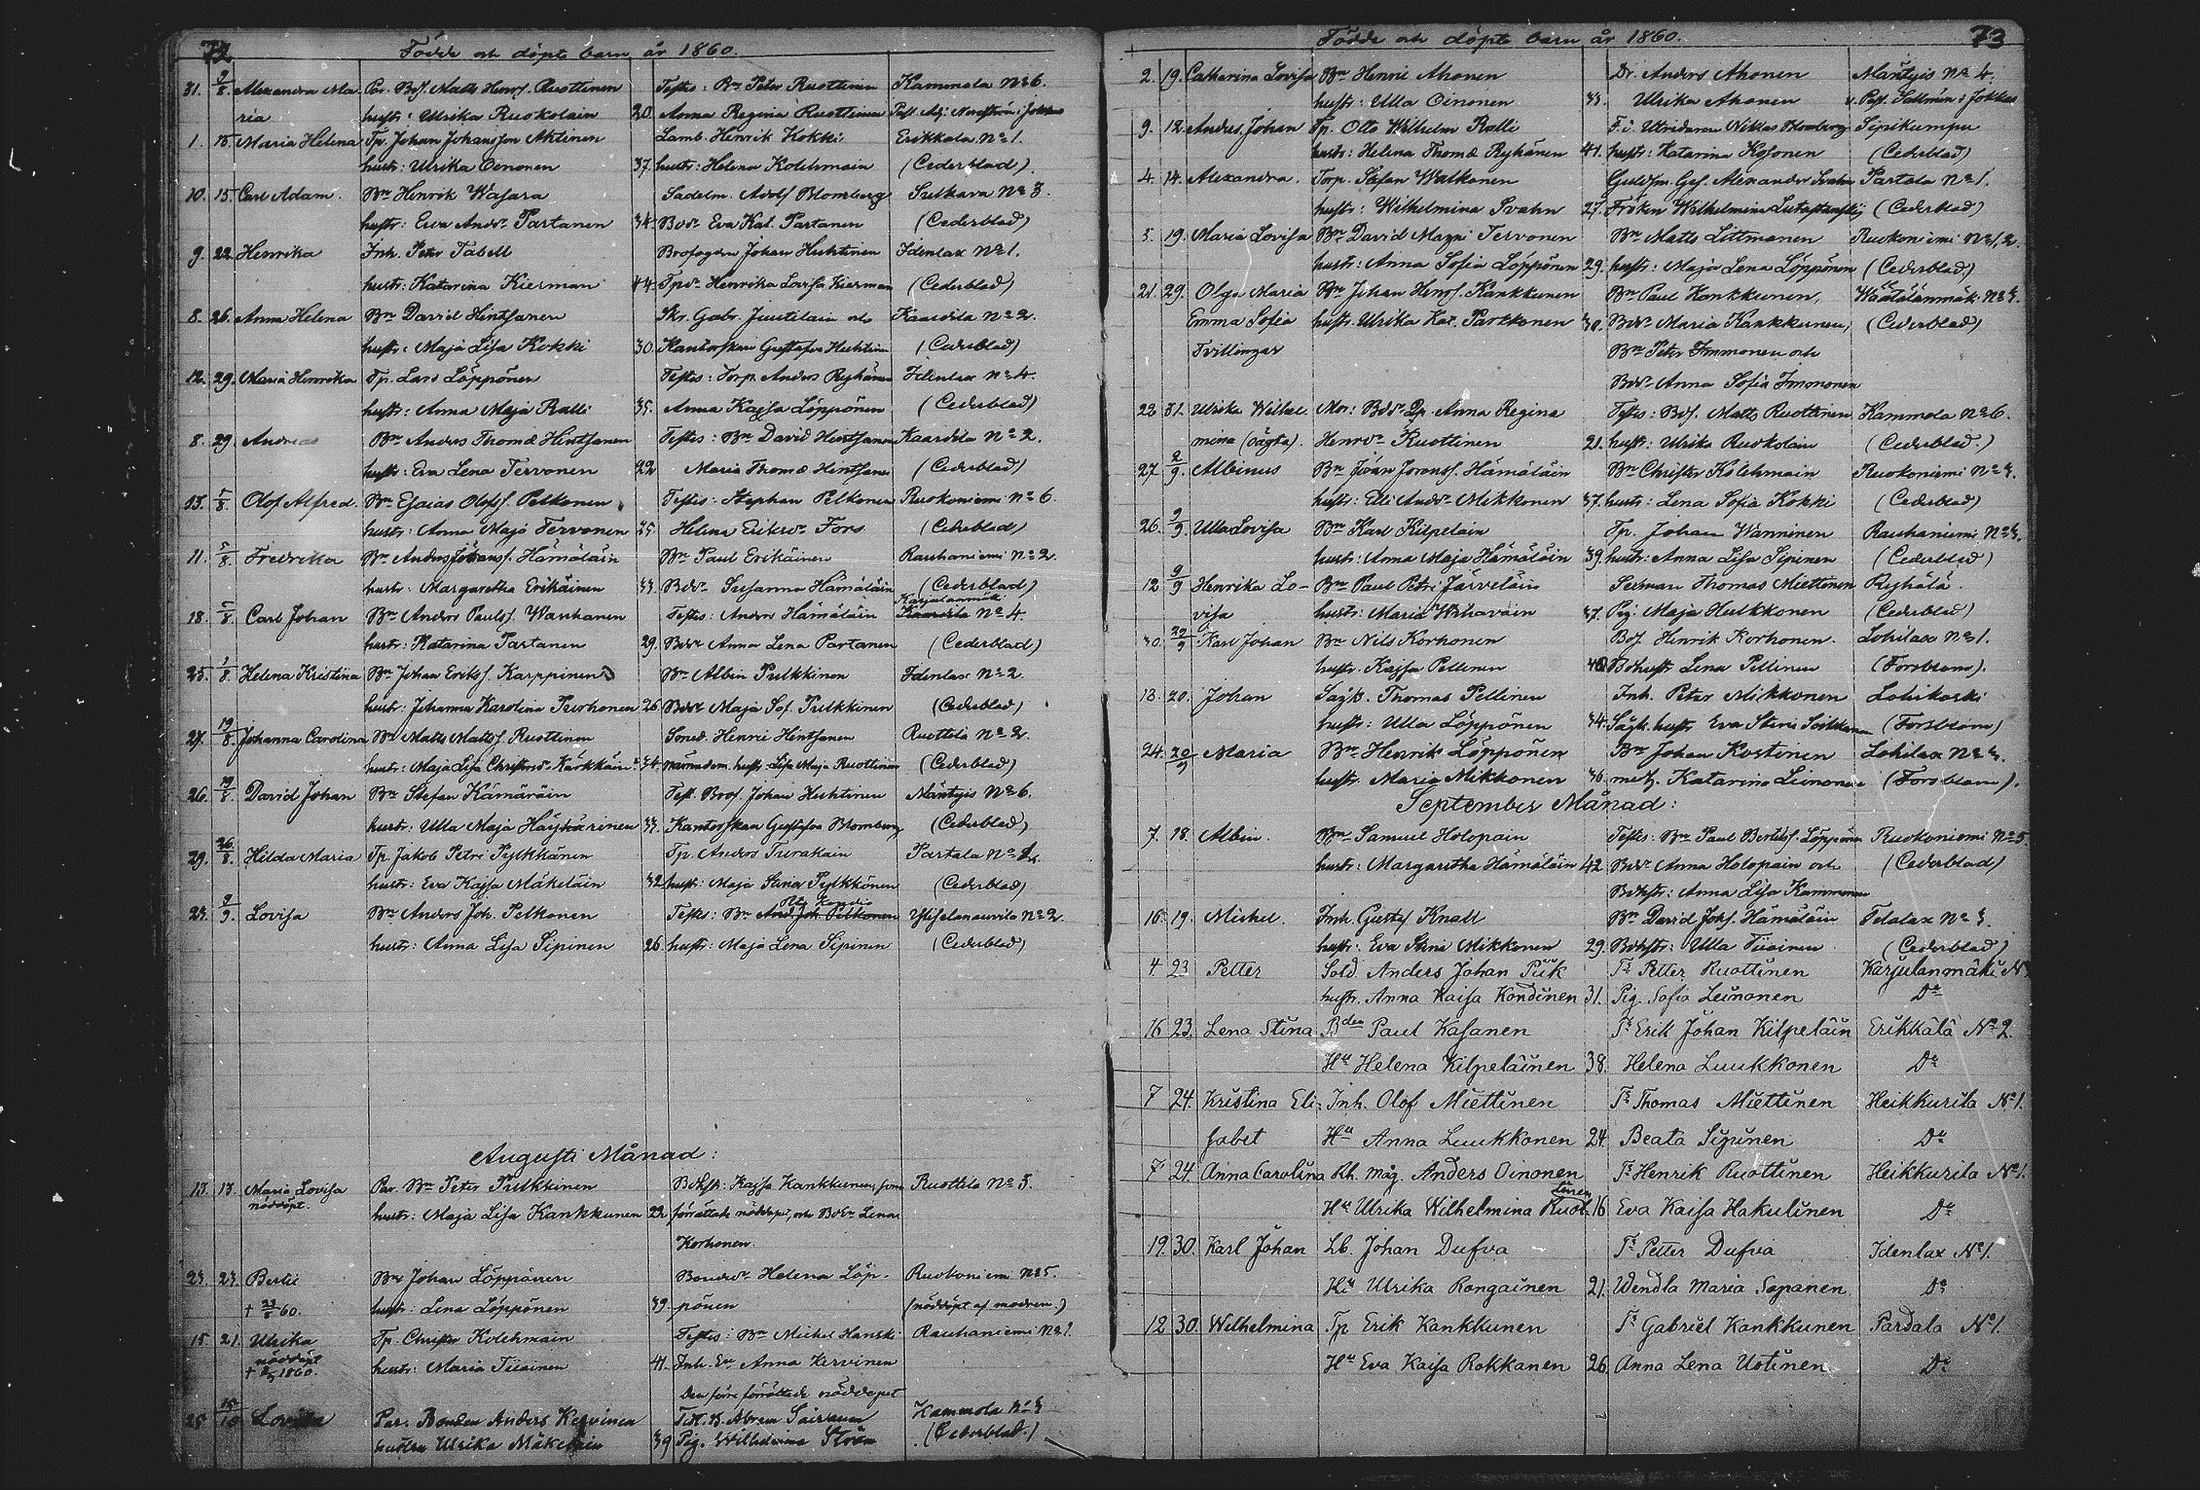 72
Födde och döpte barn år 1860.
31. 2/8. Alexandra Ma- Par. Bds. Matts Henrs. Ruottinen Testes: Bn Peter Ruottinen Kammola No 6.
ria hustr: Ulrika Ruokolain 20. Anna Regina Ruottinen Past. Adj. Nordström i Jokkas
1. 15. Maria Helena Tp. Johan Johansson Ahtinen Lamb. Henrik Kokki Erikkala No 1.
hustr: Ulrika Oenonen 37. hustr: Helena Kolehmain (Cederblad).
10. 15. Carl Adam. Bn Henrik Wasara Sadelm. Adolf Blomberg Sulkava No 3.
hustr: Eva Andrs Partanen 34. Bdr Eva Kat. Partanen (Cederblad)
9. 22. Henrika Inh. Petr Tabell Brofogden Johan Huhtinen Idenlax No 1.
hustr: Katarina Kierman 44. Tpdr Henrika Lovisa Kierman (Cederblad)
8. 26. Anna Helena Bn David Hintsanen Skr. Gabr. Juutilain och Kaardila No 2.
hustr: Maja Lisa Kokki 30. Kantorskan Gustafva Huhtinen (Cederblad)
12. 29. Maria Henrika Tp. Lars Löppönen Testes: Torp. Anders Ryhänen Idenlax No 4.
hustr: Anna Maja Ralli 35. Anna Kajsa Löppönen (Cederblad)
8. 29. Andreas Bn Anders Thomæ Hintsanen Testes: Bn David Hintsanen Kaardila No 2.
hustr: Eva Lena Tervonen 22 Maria Thomæ Hintsanen (Cederblad)
13. 5/8. Olof Alfred. Bn Esaias Olofs. Pelkonen Testes: Stephan Pelkonen Ruokoniemi No 6.
hustr: Anna Maja Tervonen 25. Helena Eriksdr Fors (Cederblad)
11. 5/8. Fredrika Bn Anders Johans. Hämäläin Bn Paul Erikäinen Rauhaniemi No 2.
hustr: Margaretha Erikäinen 33. Bdr Susanna Hämäläin (Cederblad)
Karjulanmäki
18. 5/8. Carl Johan Bn Anders Pauls. Wauhkanen Testes: Anders Hämäläin Kaardila No 4.
hustr: Katarina Partanen 29. Bdr Anna Lena Partanen (Cederblad)
25. 1/8. Helena Kristina Bn Johan Eriks. Karppinen Bn Albin Pulkkinen Idenlax No 2
hustr: Johanna Karolina Turhonen 26. Bdr Maja Sof. Pulkkinen (Cederblad)
27. 19/8. Johanna Carolina Bn Matts Matts. Ruottinen Smed. Henric Hintsanen Ruottila No 2.
hustr: Maja Lisa Christersdr Kärkkäin 34. nämndem. hustr. Lisa Maja Ruottinen (Cederblad)
26. 19/8. David Johan Bn Stefan Kämäräin Test. Brof. Johan Huhtinen Mäntyis No 6.
hustr: Ulla Maja Häyhärinen 33. Kantorskan Gustafva Blomberg (Cederblad)
29. 26/8. Hilda Maria Tp. Jakob Petri Pylkkänen Tp. Anders Turakain Partala No 2.
hustr: Eva Kajsa Mäkeläin 32. hustr: Maja Stina Pylkkönen (Cederblad)
23. 2/9. Lovisa Bn Anders Joh. Pelkonen Testes: Bn And. Joh. Pelkonen No 2.
hustr: Anna Lisa Sipinen 26. hustr: Maja Lena Sipinen (Cederblad)
Augusti Månad:
13. 13. Maria Lovisa Par. Bn Peter Pulkkinen Bdhstr: Kajsa Kankkunen, som Ruottila No 3.
nöddöpt. hustr: Maja Lisa Kankkunen 22. förrättade nöddopet, och Bdr Lena
Korhonen.
23. 23. Bertil Bn Johan Löppönen Bondedr Helena Löp- Ruokoniemi No 5.
† 23/8 60. hustr: Lena Löppönen 39. pönen (nöddöpt af modren.)
15. 21. Ulrika Tp. Christer Kolehmain Testes: Bn Michel Hanski Rauhaniemi No 1.
nöddöpt
† 1860. hustr: Maria Tiiainen 41. Inh. Enk. Anna Kervinen
den förre förrättade nöddopet
25 15/10 Lovisa Par. Bonden Anders Kervinen Test. B. Abram Kammola No 3
hustru Ulrika Mäkeläin 39 Pig. Wilhelmina Ström (Cederblad.)
73
Födde och döpte barn år 1860.
2. 19. Catharina Lovisa Bn Henric Ahonen Dr. Anders Ahonen Mäntyis No 4.
hustr: Ulla Oinonen 33. Ulrika Ahonen v. Past. Sallmén i Jokkas
9. 12. Anders Johan Tp. Otto Wilhelm Ralli F. d. Utridaren Niklas Blomberg Sipikumpu
hustr: Helena Thomæ Ryhänen 41. hustr: Katarina Kosonen (Cederblad)
4. 14. Alexandra. Torp. Stefan Walkonen Guldsm. Ges. Alexander Svahn Partala No 1.
hustr: Wilhelmina Svahn 27. Fröken Wilhelmina (Cederblad)
5. 19. Maria Lovisa Bn David Magni Tervonen Bn Matts Littmanen Ruokoniemi No 1, 2.
hustr: Anna Sofia Löppönen 29. hustr: Maja Lena Löppönen (Cederblad)
21. 29. Olga Maria Bn Johan Henrs. Kankkunen Bn Paul Kankkunen, Wäätälänmäki No 3.
Emma Sofia hustr. Ulrika Kat. Parkkonen 30. Bdr Maria Kankkunen, (Cederblad)
Tvillingar Bn Peter Immonen och
Bdr Anna Sofia Immonen
22. 31. Ulrika Wilhel- Mor: Bdr Pp Anna Regina Testes: Bds. Matts Ruottinen Kammola No 6.
mina (oägta). Henrsdr Ruottinen 21. hustr: Ulrika Ruokolain (Cederblad.)
27. 2/9. Albinus Bn Jöran Jörans. Hämäläin Bn Christer Kolehmain Ruokoniemi No 3.
hustr: Elli Andrs Mikkonen 37. hustr: Lena Sofia Kokki (Cederblad)
26. 2/9. Ulla Lovisa Bn Karl Kilpeläin Tp. Johan Wänninen Rauhaniemi No 3.
hustr: Anna Maja Hämäläin 39. hustr: Anna Lisa Sipinen (Cederblad)
12. 9/9 Henrika Lo- Bn Paul Petri Järveläin Sedman Thomas Miettinen Ryhälä.
visa hustr: Maria Wihavain 37. Pig: Maja Hulkkonen (Cederblad)
30. 20/9 Karl Johan Bn Nils Korhonen Bds. Henrik Korhonen. Lohilax No 1.
hustr. Kajsa Pellinen 40. Bdhustr Lena Pellinen (Forsblom).
13. 20. Johan Sågk. Thomas Pellinen Inh. Peter Mikkonen Lohikoski
hustr: Ulla Löppönen 34. Sågk. hustr Eva Stina (Forsblom)
24. 20/9 Maria Bn Henrik Löppönen Bn Johan Kostonen Lohilax No 3.
hustr. Maria Mikkonen 36. m. h. Katarina Leinonen (Forsblom).
September Månad:
7. 18. Albin. Bn Samuel Holopain Testes: Bn Paul Bertils. Löppönen Ruokoniemi No 5
hustr: Margaretha Hämäläin 42 Bdr Anna Holopain och (Cederblad)
Bdhstr: Anna Lisa Kammonen
16. 19. Michel. Inh. Gustaf Knall Bn David Johs. Hämäläin Telalax No 3.
hustr: Eva Stina Mikkonen 29. Bdhstr: Ulla Tiiainen (Cederblad)
4 23 Petter Sold. Anders Johan Piik Ts Petter Ruottinen Karjulanmäki No
hustr. Anna Kaisa Kondinen 31. Pig. Sofia Leinonen Do
16 23. Lena Stina Bden Paul Kasanen Ts Erik Johan Kilpeläin Erikkälä No 2.
Hu Helena Kilpeläinen 38. Helena Luukkonen Do
7 24. Kristina Eli- Inh. Olof Miettinen Ts Thomas Miettinen Heikkurila No 1.
sabet Hu Anna Luukkonen 24. Beata Sipinen Do
7 24. Anna Carolina Lh. måg. Anders Oinonen Ts Henrik Ruottinen Heikkurila No 1.
Hu Ulrika Wilhelmina Ruottinen 16 Eva Kaisa Hakulinen Do
19. 30. Karl Johan Lb. Johan Dufva Ts Petter Dufva Idenlax No 1.
Hu Ulrika Rongainen 21. Wendla Maria Sopanen Do
12 30. Wilhelmina Tp Erik Kankkunen Ts Gabriel Kankkunen Pardala No 1.
Hu Eva Kaisa Rokkanen 26. Anna Lena Ustinen Do